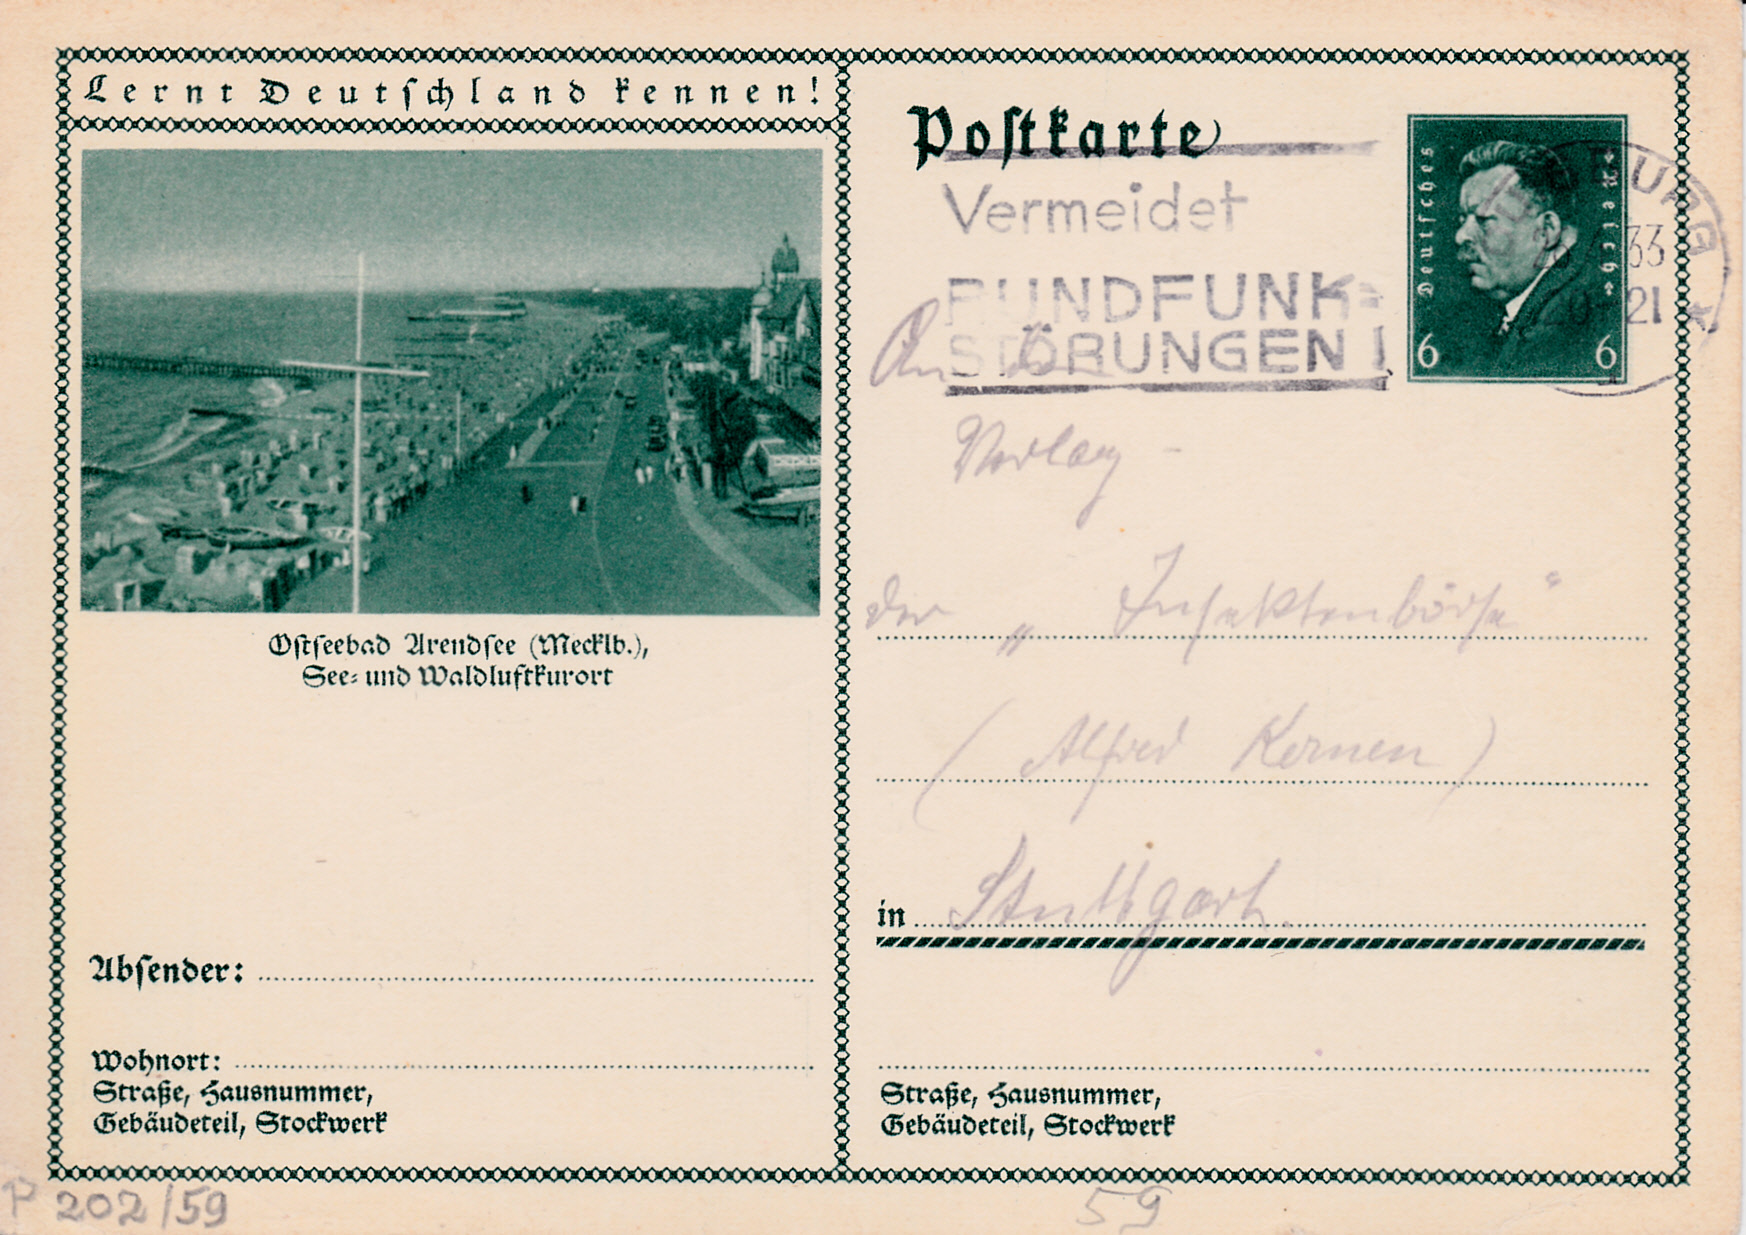 Lernt Deutschland kennen!
Ostseebad Arendsee (Mecklb.),
See- und Waldluftkurort
Absender:
Wohnort:
Straße, Hausnummer,
Gebäudeteil, Stockwerk
P 202/59
Postkarte
Vermeidet
RUNDFUNK-
STÖRUNGEN!
Deutsches Reich
6 6
33
21
An
Verlag -
der „Insektenbörse"
(Alfred Kernen)
in Stuttgart.
Straße, Hausnummer,
Gebäudeteil, Stockwerk
59